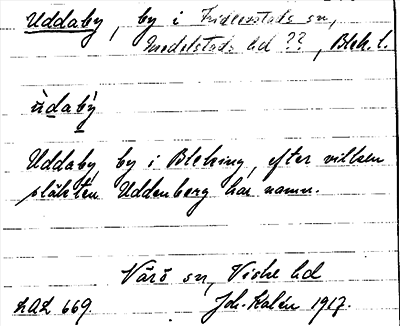 Uddaby, by i Fridlevstads sn,
Medelstads hd ??, Blek. l.
ùdabý
Uddaby, by i Bleking, efter vilken
släkten Uddenberg har namn.
Värö sn, Viske hd
LAL 669. Joh. Kalén 1917.